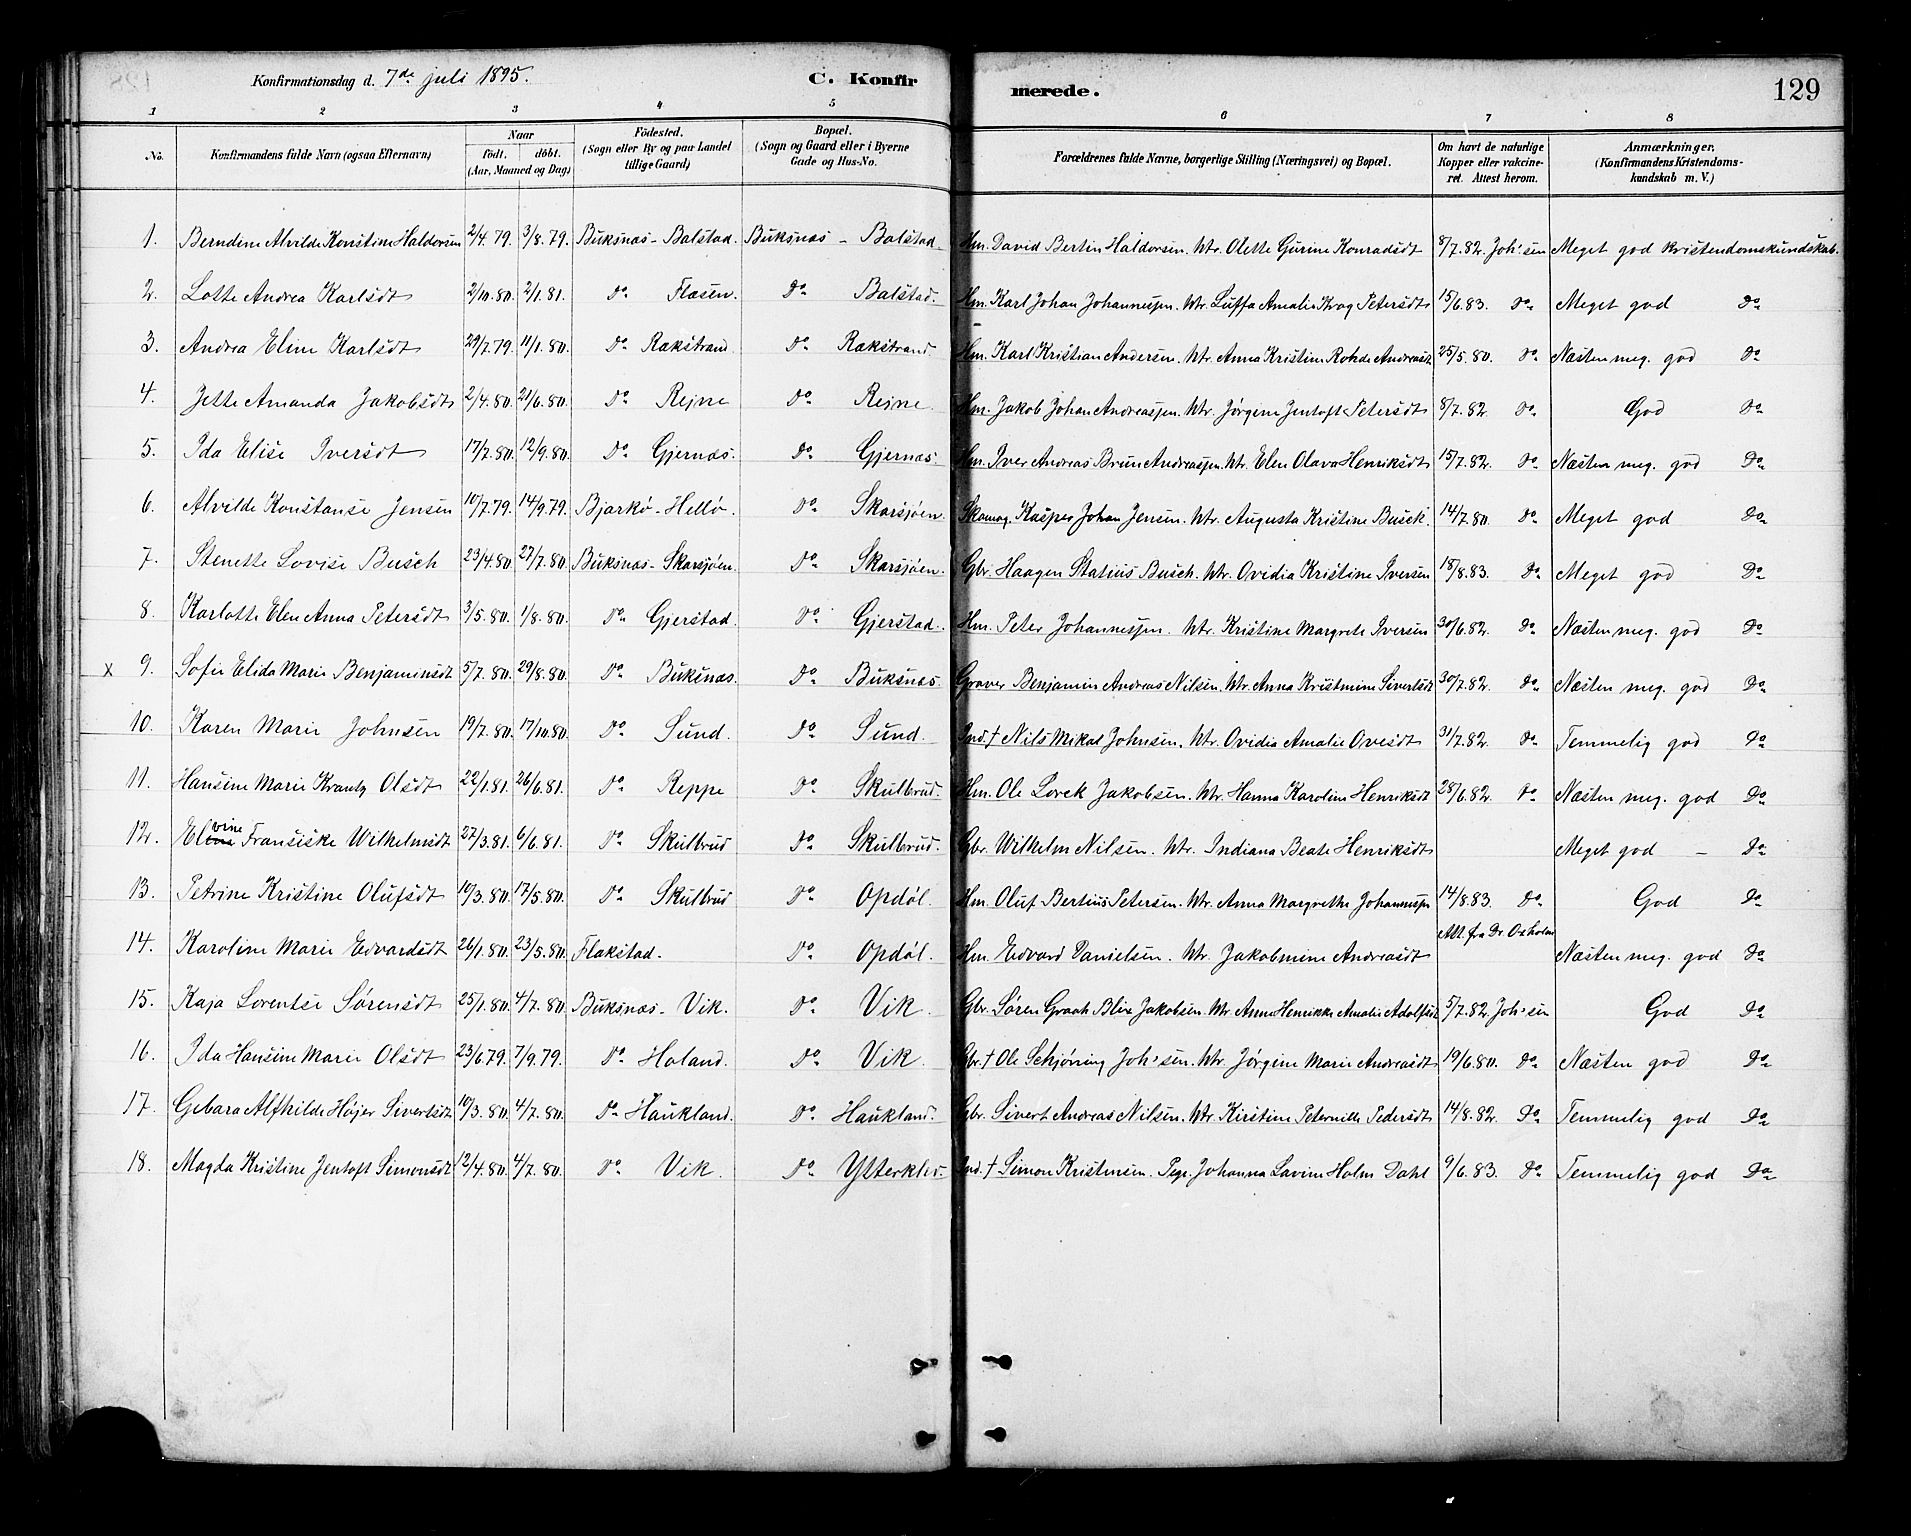 Konfirmationsdag d. 7de juli 1895. C. Konfirmerede. 129
1 2 3 4 5 6 7 8
No. Konfirmandens fulde Navn (ogsaa Efternavn) Naar födt. döbt. (Aar, Maaned og Dag) Födested. (Sogn eller By og paa Landet tillige Gaard) Bopæl. (Sogn og Gaard eller i Byerne Gade og Hus-No. Forældrenes fulde Navne, borgerlige Stilling (Næringsvei) og Bopæl. Om havt de naturlige Kopper eller vakcineret. Attest herom. Anmærkninger. (Konfirmandens Kristendomskundskab m. V.)
1. Berndine Alvilde Konstine Haldorsen 2/4.79. 3/8.79. Buksnæs - Balstad. Buksnæs - Balstad. Hm. David Bertin Haldorsen. Htr. Olette Gurine Konradsdt 8/7.82. Joh'sen Meget god kristendomskundskab.
2. Lotte Andrea Karlsdt 2/10.80. 2/1.81. do Flæsen. do Balstad. Hm. Karl Johan Johannessen. Htr. Luffa Amalie Krog Petersdt 15/6.83. do Meget god do
3. Andrea Eline Karlsdt 29/7.79. 11/1.80. do Rækstrand. do Rækstrand Hm. Karl Kristian Andersen. Htr. Anna Kristine Rohde Andreasdt 25/5.80. do Næsten meg. god do
4. Jette Amanda Jakobsdt 2/4.80. 21/6.80. do Rejne do Reine. Hm. Jakob Johan Andreassen. Htr. Jørgine Jentoft Petersdt 8/7.82. do God do
5. Ida Elise Iversdt 17/7.80. 12/9.80. do Gjernæs. do Gjernæs. Hm. Iver Andreas Brun Andreassen. Htr. Elen Olava Henriksdt 15/7.82. do Næsten meg. god do
6. Alvilde Konstanse Jensen 10/7.79. 14/9.79. Bjarkö - Hellö. do Skarsjøen. Skomag. Kasper Johan Jensen. Htr. Augusta Kristine Busch. 14/7.80. do Meget god do
7. Stenette Lovise Busch 23/4.80. 27/7.80. Buksnæs - Skarsjøen. do Skarsjøen. Gbr. Haagen Statius Busch. Htr. Ovidia Kristine Iversen 18/8.83. do Meget god do
8. Karlotte Elen Anna Petersdt 3/5.80. 1/8.80. do Gjerstad. do Gjerstad. Hm. Peter Johannessen. Htr. Kristine Margrete Iversen 30/6.82. do Næsten meg. god do
x 9. Sofie Elida Marie Benjaminsdt 5/7.80. 29/8.80. do Buksnæs. do Buksnæs. Graver Benjamin Andreas Nilsen. Htr. Anna Kristmine Sivertsdt 30/7.82. do Næsten meg. god do
10. Karen Marie Johnsen 19/7.80. 17/10.80. do Sund. do Sund. Ind. † Nils Mikal Johnsen. Htr. Ovidia Amalie Ovesdt 31/7.82. do Temmelig god do
11. Hansine Marie Krantz Olsdt 22/1.81. 26/6.81. do Reppe do Skulbrud. Hm. Ole Lorek Jakobsen. Htr. Hanna Karoline Henriksdt 28/6.82. do Næsten meg. god do
12. Elvine Fransiske Wilhelmsdt 27/3.81. 6/6.81. do Skulbrud do Skulbrud. Gbr. Wilhelm Nilsen. Htr. Indiana Beate Henriksdt Meget god - do
13. Petrine Kristine Olufsdt 10/3.80. 17/5.80. do Skulbrud do Opdøl. Hm. Oluf Bertius Petersen. Htr. Anna Margrethe Johannessen 14/8.83. do God do
14. Karoline Marie Edvardsdt 26/1.80. 23/5.80. Flakstad. do Opdøl. Hm. Edvard Danielsen. Htr. Jakobmine Andreasdt Att. fra Dr. Oxholm Næsten meg. god do
15. Kaja Lorentse Sørensdt 25/1.80. 4/7.80. Buksnæs - Vik. do Vik. Gbr. Søren Graah Blix Jakobsen. Htr. Anne Henrikke Amalie Adolfsdt 5/7.82. Joh'sen God do
16. Ida Hansine Marie Olsdt 23/6.79. 7/9.79. do Holand. do Vik. Gbr. † Ole Schjørring Joh'sen. Htr. Jørgine Marie Andreasdt 19/6.80. do Næsten god do
17. Gebara Alfhilde Højer Sivertsdt 10/3.80. 4/7.80. do Haukland. do Haukland. Gbr. Sivert Andreas Nilsen. Htr. Kirstine Peternille Pedersdt 14/8.82. do Temmelig god do
18. Magda Kristine Jentoft Simonsdt 12/4.80. 4/7.80. do Vik. do Ytterklev. Ind. † Simon Kristensen. Pige Johanna Lavine Holm Dahl 9/6.83. do Temmelig god do